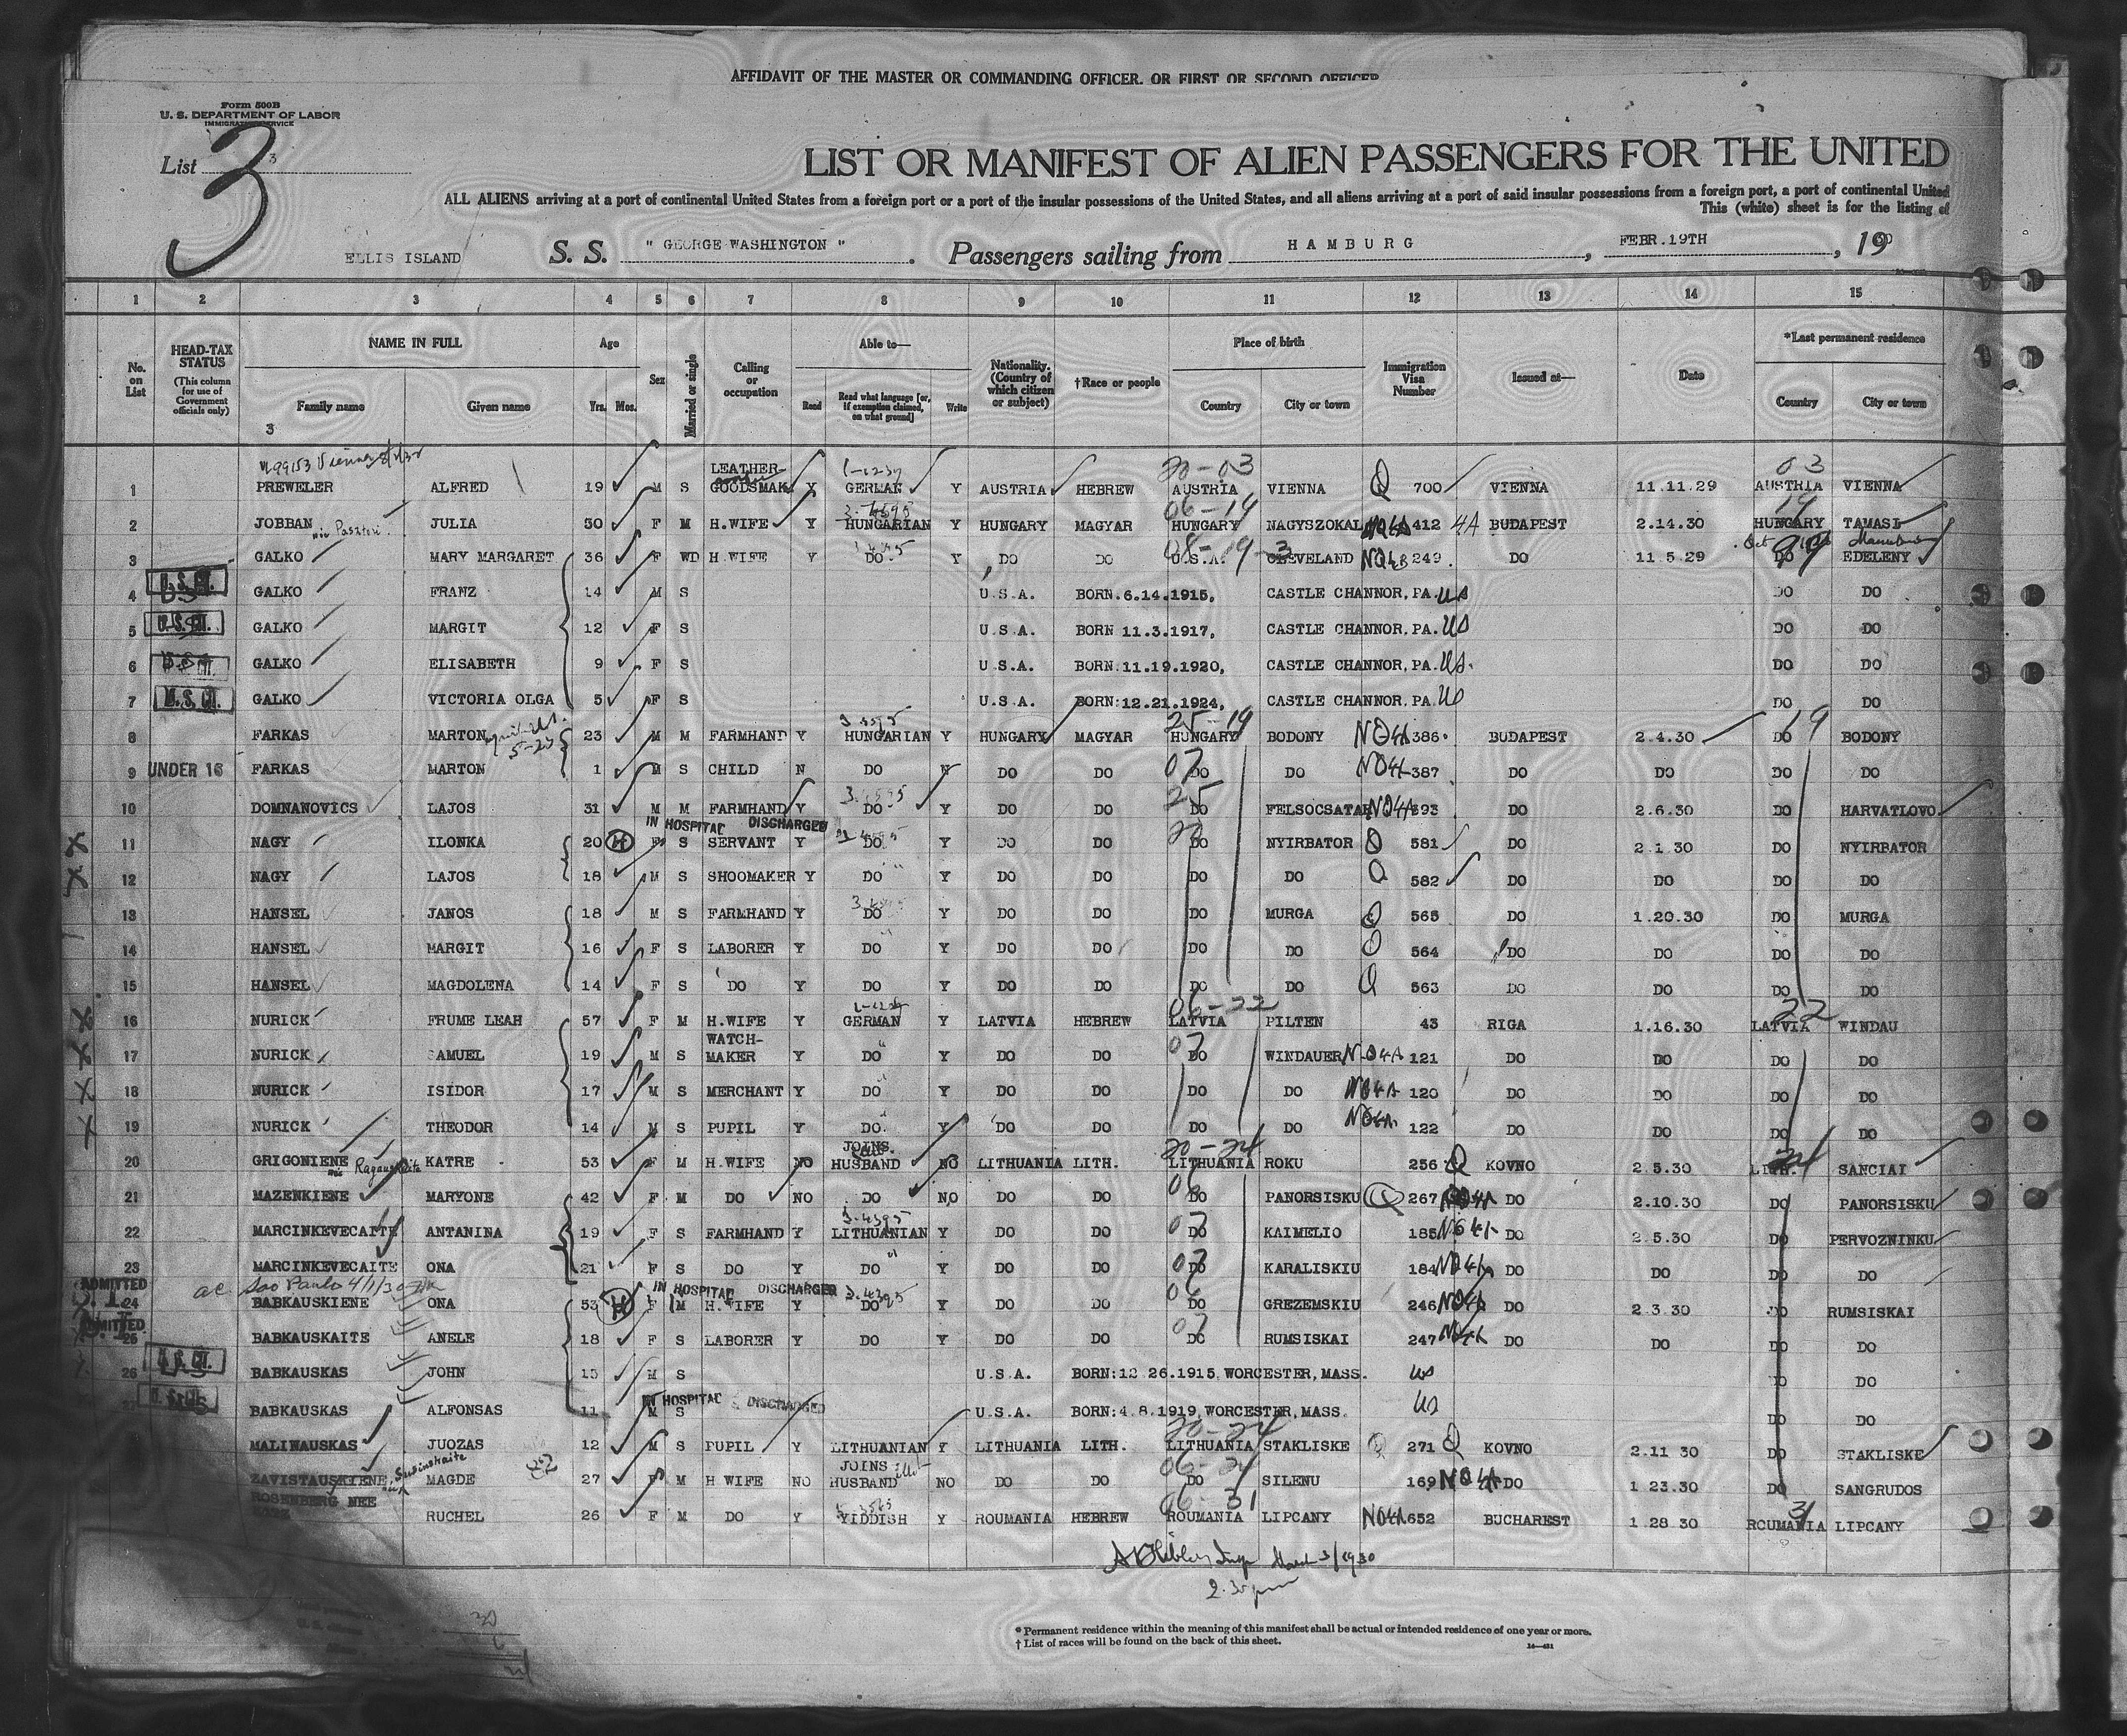 AFFIDAVIT OF THE MASTER OR COMMANDING OFFICER, OR FIRST OR SECOND OFFICER
Form 500B
U. S. DEPARTMENT OF LABOR
IMMIGRATION SERVICE
List 3
3
LIST OR MANIFEST OF ALIEN PASSENGERS FOR THE UNITED
ALL ALIENS arriving at a port of continental United States from a foreign port or a port of the insular possessions of the United States, and all aliens arriving at a port of said insular possessions from a foreign port, a port of continental United
This (white) sheet is for the listing of
ELLIS ISLAND S. S. " GEORGE WASHINGTON " . Passengers sailing from HAMBURG , FEBR.19TH , 1930
1 2 3 4 5 6 7 8 9 10 11 12 13 14 15
No. on List HEAD-TAX STATUS (This column for use of Government officials only) NAME IN FULL Family name Given name Age Yrs. Mos. Sex Married or single Calling or occupation Able to— Read Read what language [or, if exemption claimed, on what ground] Write Nationality. (Country of which citizen or subject) †Race or people Place of birth Country City or town Immigration Visa Number Issued at— Date *Last permanent residence Country City or town
3
20-03 03
1 PREWELER ALFRED 19 M S LEATHER-GOODSMAK Y GERMAN Y AUSTRIA HEBREW AUSTRIA VIENNA Q 700 VIENNA 11.11.29 AUSTRIA VIENNA
06-19 19
2 JOBBAN JULIA 50 F M H.WIFE Y HUNGARIAN Y HUNGARY MAGYAR HUNGARY NAGYSZOKAL 412 4A BUDAPEST 2.14.30 HUNGARY TAMASI
3 GALKO MARY MARGARET 36 F WD H.WIFE Y DO Y DO DO U.S.A. CLEVELAND NQ4B 249 DO 11.5.29 DO EDELENY
4 U.S.CIT. GALKO FRANZ 14 M S U.S.A. BORN.6.14.1915, CASTLE CHANNOR, PA. US DO DO
5 U.S.CIT. GALKO MARGIT 12 F S U.S.A. BORN 11.3.1917, CASTLE CHANNOR, PA. US DO DO
6 U.S.CIT. GALKO ELISABETH 9 F S U.S.A. BORN.11.19.1920, CASTLE CHANNOR, PA. US. DO DO
7 U.S.CIT. GALKO VICTORIA OLGA 5 F S U.S.A. BORN:12.21.1924, CASTLE CHANNOR, PA. US DO DO
25-19 19
8 FARKAS MARTON 23 M M FARMHAND Y HUNGARIAN Y HUNGARY MAGYAR HUNGARY BODONY NQ4A 386 BUDAPEST 2.4.30 DO BODONY
9 UNDER 16 FARKAS MARTON 1 M S CHILD N DO N DO DO 07 DO DO NQ4A 387 DO DO DO DO
10 DOMNANOVICS LAJOS 31 M M FARMHAND Y DO Y DO DO 25 DO FELSOCSATAR NQ4A 393 DO 2.6.30 DO HARVATLOVO
IN HOSPITAL DISCHARGED
11 NAGY ILONKA 20 H F S SERVANT Y DO Y DO DO DO NYIRBATOR Q 581 DO 2.1.30 DO NYIRBATOR
12 NAGY LAJOS 18 M S SHOOMAKER Y DO Y DO DO DO DO Q 582 DO DO DO DO
13 HANSEL JANOS 18 M S FARMHAND Y DO Y DO DO DO MURGA Q 565 DO 1.20.30 DO MURGA
14 HANSEL MARGIT 16 F S LABORER Y DO Y DO DO DO DO Q 564 DO DO DO DO
15 HANSEL MAGDOLENA 14 F S DO Y DO Y DO DO DO DO Q 563 DO DO DO DO
06-22 22
16 NURICK FRUME LEAH 57 F M H.WIFE Y GERMAN Y LATVIA HEBREW LATVIA PILTEN 43 RIGA 1.16.30 LATVIA WINDAU
17 NURICK SAMUEL 19 M S WATCH-MAKER Y DO Y DO DO 07 DO WINDAUER NQ4A 121 DO DO DO DO
18 NURICK ISIDOR 17 M S MERCHANT Y DO Y DO DO DO DO NQ4A 120 DO DO DO DO
19 NURICK THEODOR 14 M S PUPIL Y DO Y DO DO DO DO NQ4A 122 DO DO DO DO
20-24 24
20 GRIGONIENE KATRE 53 F M H.WIFE NO JOINS HUSBAND NO LITHUANIA LITH. LITHUANIA ROKU 256 Q KOVNO 2.5.30 LITH. SANCIAI
21 MAZENKIENE MARYONE 42 F M DO NO DO NO DO DO 06 DO PANORSISKU Q 267 DO 2.10.30 DO PANORSISKU
22 MARCINKEVECAITE ANTANINA 19 F S FARMHAND Y LITHUANIAN Y DO DO 07 DO KAIMELIO 185 NQ4A DO 2.5.30 DO PERVOZNINKU
23 MARCINKEVECAITE ONA 21 F S DO Y DO Y DO DO 07 DO KARALISKIU 184 NQ4A DO DO DO DO
ADMITTED Sao Paulo 4/1/30 IN HOSPITAL DISCHARGED
24 BABKAUSKIENE ONA 53 H F M H.WIFE Y DO Y DO DO 06 DO GREZEMSKIU 246 NQ4A DO 2.3.30 DO RUMSISKAI
ADMITTED
25 BABKAUSKAITE ANELE 18 F S LABORER Y DO Y DO DO 07 DO RUMSISKAI 247 NQ4A DO DO DO DO
26 U.S.CIT. BABKAUSKAS JOHN 15 M S U.S.A. BORN:12 26.1915, WORCESTER, MASS. US DO DO
IN HOSPITAL DISCHARGED
BABKAUSKAS ALFONSAS 11 M S U.S.A. BORN:4.8.1919, WORCESTER, MASS. US DO DO
20-24
MALINAUSKAS JUOZAS 12 M S PUPIL Y LITHUANIAN Y LITHUANIA LITH. LITHUANIA STAKLISKE 271 Q KOVNO 2.11 30 DO STAKLISKE
06-24
ZAVISTAUSKIENE MAGDE 27 F M H WIFE NO JOINS HUSBAND NO DO DO DO SILENU 169 NQ4A DO 1 23.30 DO SANGRUDOS
06-31 31
ROSENBERG NEE RUCHEL 26 F M DO Y YIDDISH Y ROUMANIA HEBREW ROUMANIA LIPCANY NQ4A 652 BUCHAREST 1 28 30 ROUMANIA LIPCANY
March 3/1930
* Permanent residence within the meaning of this manifest shall be actual or intended residence of one year or more.
† List of races will be found on the back of this sheet.